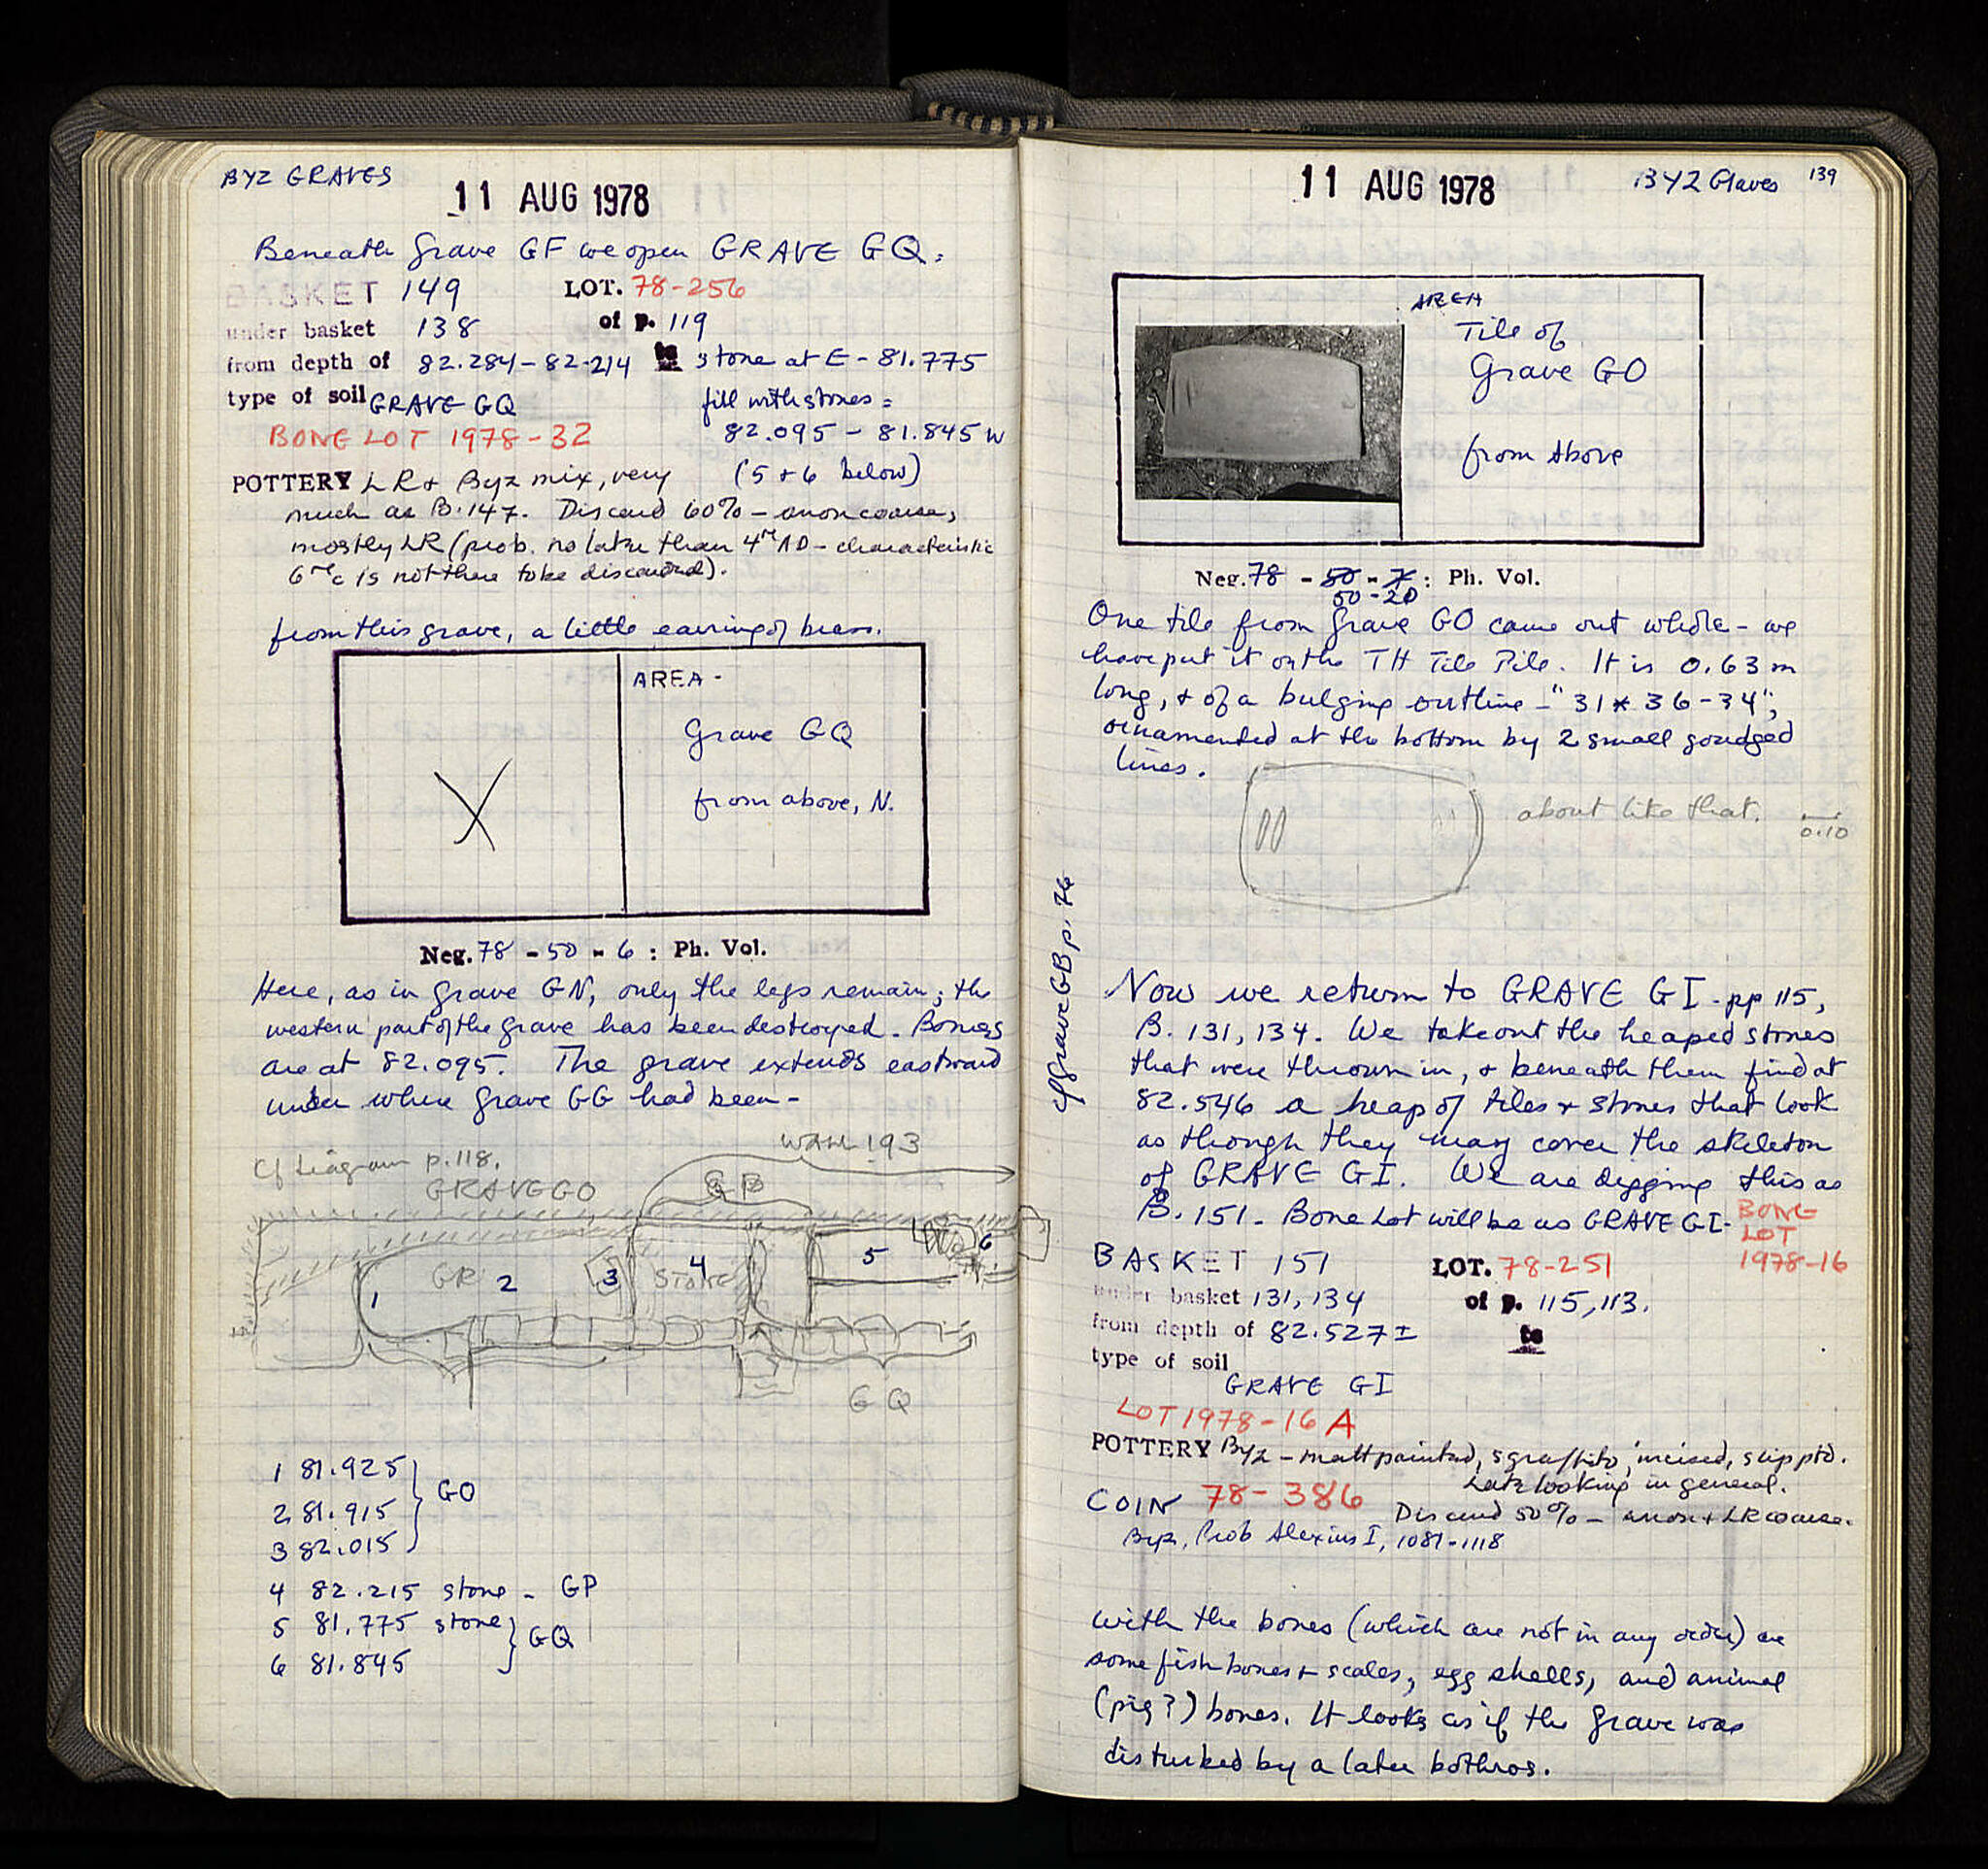 BYZ GRAVES
11 AUG 1978
Beneath Grave GF we open GRAVE GQ.
BASKET 149 LOT. 78-256
under basket 138 of p. 119
from depth of 82.284-82.214 to stone at E - 81.775
type of soil GRAVE GQ fill with stones =
BONE LOT 1978-32 82.095 - 81.845 W
POTTERY LR + Byz mix, very (5 + 6 below)
much as B.147. Discard 60% - anon coarse,
mostly LR (prob. no later than 4th AD - characteristic
6th c is not there to be discarded).
from this grave, a little earring of brass.
AREA -
Grave GQ
from above, N.
X
Neg. 78 - 50 - 6 : Ph. Vol.
Here, as in Grave GN, only the legs remain; the
western part of the grave has been destroyed. Bones
are at 82.095. The grave extends eastward
under where Grave GG had been -
WALL 193
Cf diagram p.118.
GRAVE GO GP
1 2 3 4 STONE 5 6
GQ
1 81.925
2 81.915 } GO
3 82.015
4 82.215 stone - GP
5 81.775 stone } GQ
6 81.845
11 AUG 1978 BYZ Graves 139
AREA
Tile of
Grave GO
from above
Neg. 78 - 50 - 7 : Ph. Vol.
50-20
One tile from Grave GO came out whole - we
have put it on the TH Tile Pile. It is 0.63 m
long, & of a bulging outline - "31 x 36-34",
ornamented at the bottom by 2 small gouged
lines.
about like that. 0.10
cf Grave GB p. 76
Now we return to GRAVE GI - pp 115,
B. 131, 134. We take out the heaped stones
that were thrown in, & beneath them find at
82.546 a heap of tiles & stones that look
as though they may cover the skeleton
of GRAVE GI. We are digging this as
B. 151. Bone Lot will be as GRAVE GI - BONE
LOT
1978-16
BASKET 151 LOT. 78-251
under basket 131, 134 of p. 115, 113.
from depth of 82.527± to
type of soil
GRAVE GI
LOT 1978-16 A
POTTERY Byz - matt painted, sgraffito, incised, slip ptd.
Late looking in general.
COIN 78-386 Discard 50% - anon + LR coarse.
Byz, Prob Alexius I, 1081-1118
With the bones (which are not in any order) are
some fish bones + scales, egg shells, and animal
(pig?) bones. It looks as if the grave was
disturbed by a later bothros.